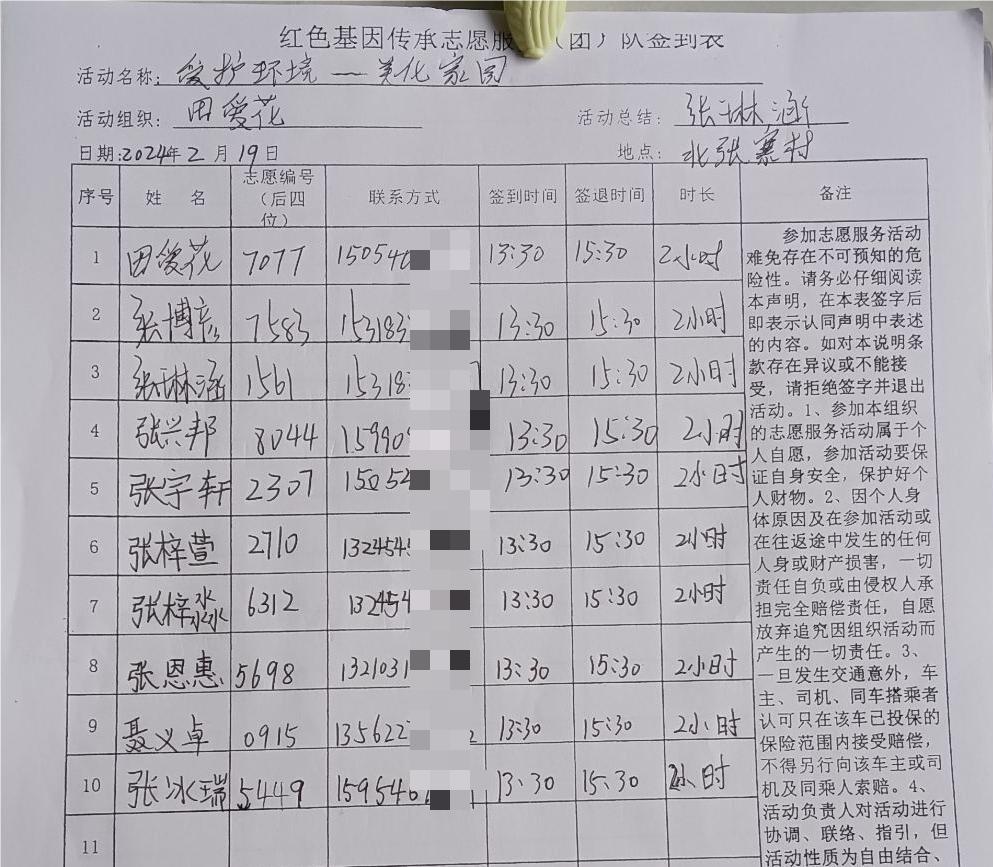 红色基因传承志愿服 （团）队签到表
活动名称: 爱护环境 — 美化家园
活动组织: 田爱花 活动总结: 张琳涵
日期:2024年2月19日 地点: 北张寨村
序号 姓名 志愿编号（后四位） 联系方式 签到时间 签退时间 时长 备注
1 田爱花 7077 150540 13:30 15:30 2小时
2 张博彦 7583 153183 13:30 15:30 2小时
3 张琳涵 1561 15318 13:30 15:30 2小时
4 张兴邦 8044 15990 13:30 15:30 2小时
5 张宇轩 2307 15052 13:30 15:30 2小时
6 张梓萱 2710 1324545 13:30 15:30 2小时
7 张梓淼 6312 132454 13:30 15:30 2小时
8 张恩惠 5698 1321031 13:30 15:30 2小时
9 聂义卓 0915 135622 2 13:30 15:30 2小时
10 张冰瑞 5449 1595460 13:30 15:30 2小时
11
参加志愿服务活动
难免存在不可预知的危
险性。请务必仔细阅读
本声明，在本表签字后
即表示认同声明中表述
的内容。如对本说明条
款存在异议或不能接
受，请拒绝签字并退出
活动。1、参加本组织
的志愿服务活动属于个
人自愿，参加活动要保
证自身安全，保护好个
人财物。2、因个人身
体原因及在参加活动或
在往返途中发生的任何
人身或财产损害，一切
责任自负或由侵权人承
担完全赔偿责任，自愿
放弃追究因组织活动而
产生的一切责任。3、
一旦发生交通意外，车
主、司机、同车搭乘者
认可只在该车已投保的
保险范围内接受赔偿，
不得另行向该车主或司
机及同乘人索赔。4、
活动负责人对活动进行
协调、联络、指引，但
活动性质为自由结合、